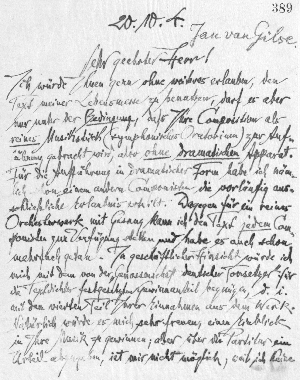 389
20. 10. 4.
Jan van Gilse
Sehr geehrter Herr!
Ich würde Ihnen gern ohne weiteres erlauben, den
Text meiner Lebensmesse zu benutzen, darf es aber
nur unter der Bedingung, daß Ihre Composition als
reines Musikstück (symphonisches Oratorium) zur Auf-
führung gebracht wird, aber ohne dramatischen Apparat.
Für die Aufführung in dramatischer Form habe ich näm-
lich von einem andern Componisten die vorläufig aus-
schließliche Erlaubnis erteilt. Dagegen für ein reines
Orchesterwerk mit Gesang kann ich den Text jedem Com-
ponisten zur Verfügung stellen und habe es auch schon
mehrfach getan. In geschäftlicher Hinsicht würde ich
mich mit dem von der Genossenschaft deutscher Tonsetzer für
die Textdichter festgesetzten Gewinnanteil begnügen, d. i.
mit dem vierten Teil Ihrer Einnahmen aus dem Werk.
Natürlich würde es mich sehr freuen, einen Einblick
in Ihre Musik zu gewinnen, aber über die Partitur ein
Urteil abzugeben, ist mir nicht möglich, weil ich keine